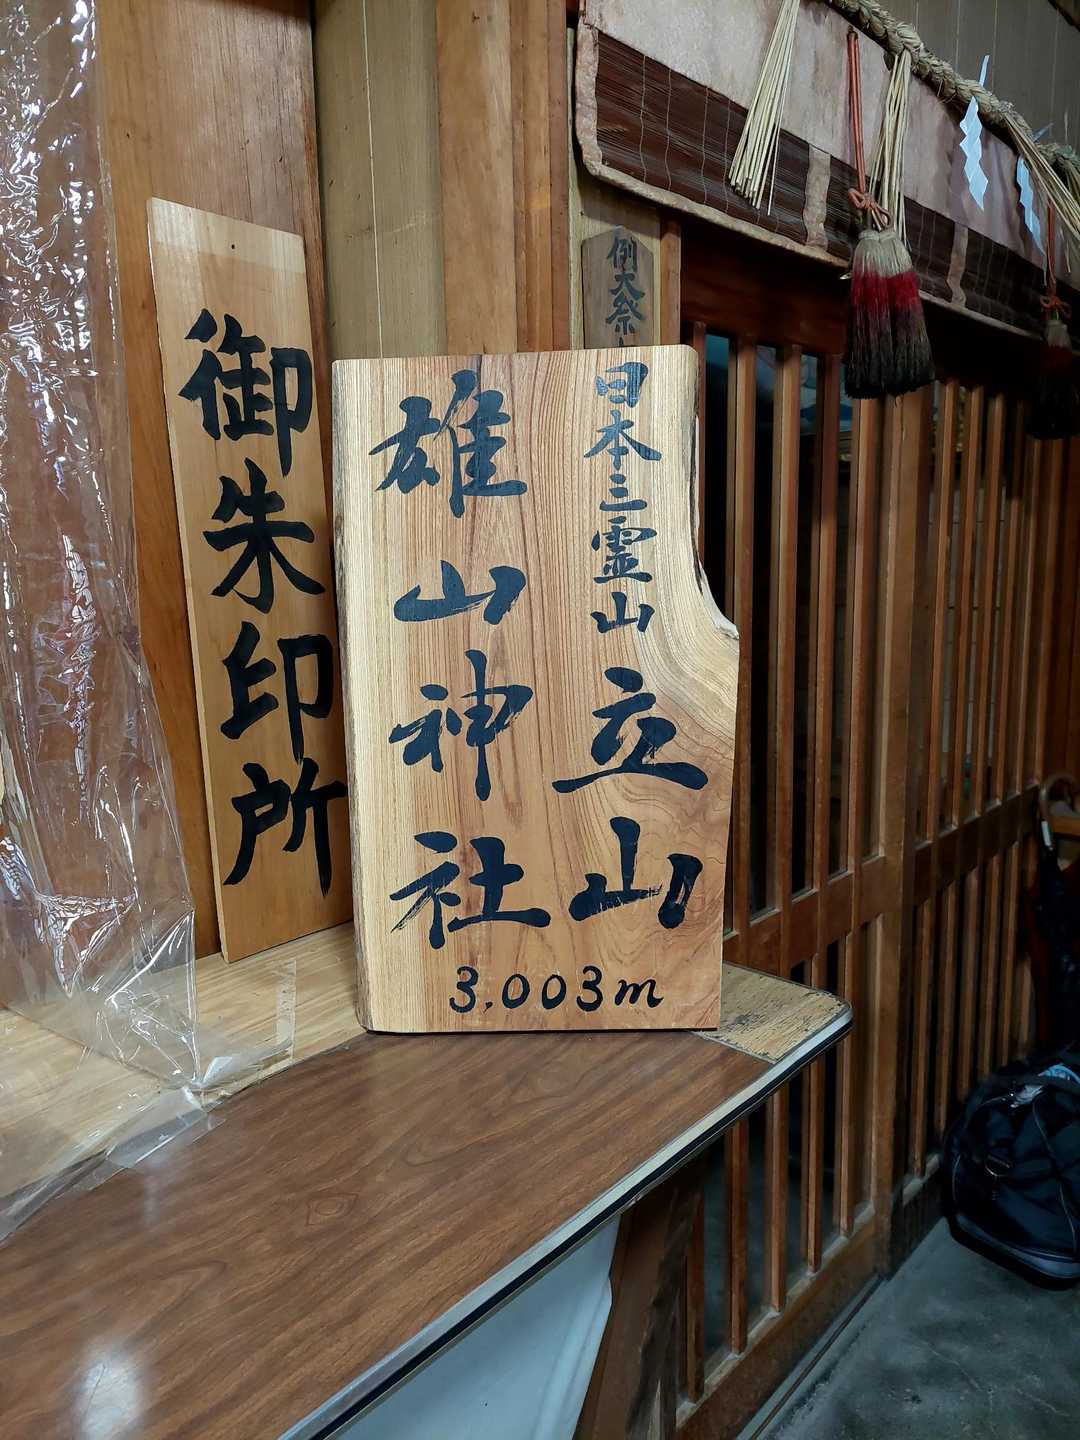 御朱印所
例大祭
日本三霊山 立山
雄山神社
3.003m